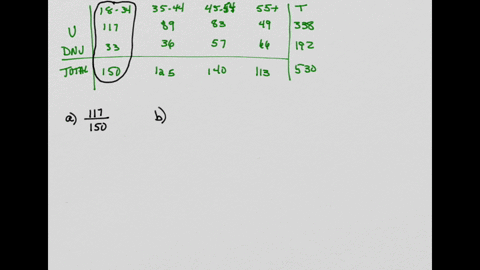 18-34 35-44 45-54 55+ T
U 117 89 83 49 338
DNU 33 36 57 66 192
TOTAL 150 125 140 113 530
a) 117/150 b)